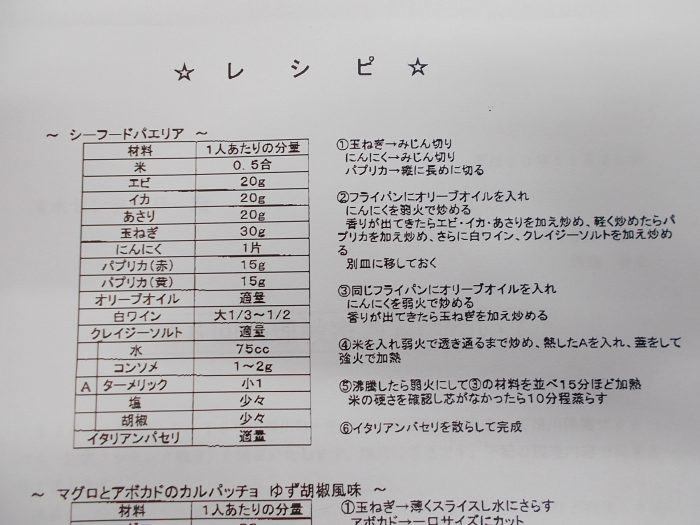 ☆ レ シ ピ ☆
～ シーフードパエリア ～
材料 1人あたりの分量
米 0.5合
エビ 20g
イカ 20g
あさり 20g
玉ねぎ 30g
にんにく 1片
パプリカ(赤) 15g
パプリカ(黄) 15g
オリーブオイル 適量
白ワイン 大1/3~1/2
クレイジーソルト 適量
水 75cc
コンソメ 1~2g
A ターメリック 小1
塩 少々
胡椒 少々
イタリアンパセリ 適量
①玉ねぎ→みじん切り
にんにく→みじん切り
パプリカ→縦に長めに切る
②フライパンにオリーブオイルを入れ
にんにくを弱火で炒める
香りが出てきたらエビ・イカ・あさりを加え炒め、軽く炒めたらパ
プリカを加え炒め、さらに白ワイン、クレイジーソルトを加え炒め
る
別皿に移しておく
③同じフライパンにオリーブオイルを入れ
にんにくを弱火で炒める
香りが出てきたら玉ねぎを加え炒める
④米を入れ弱火で透き通るまで炒め、熱したAを入れ、蓋をして
強火で加熱
⑤沸騰したら弱火にして③の材料を並べ15分ほど加熱
米の硬さを確認し芯がなかったら10分程蒸らす
⑥イタリアンパセリを散らして完成
～ マグロとアボカドのカルパッチョ ゆず胡椒風味 ～
材料 1人あたりの分量
①玉ねぎ→薄くスライスし水にさらす
アボカド→一口サイズにカット